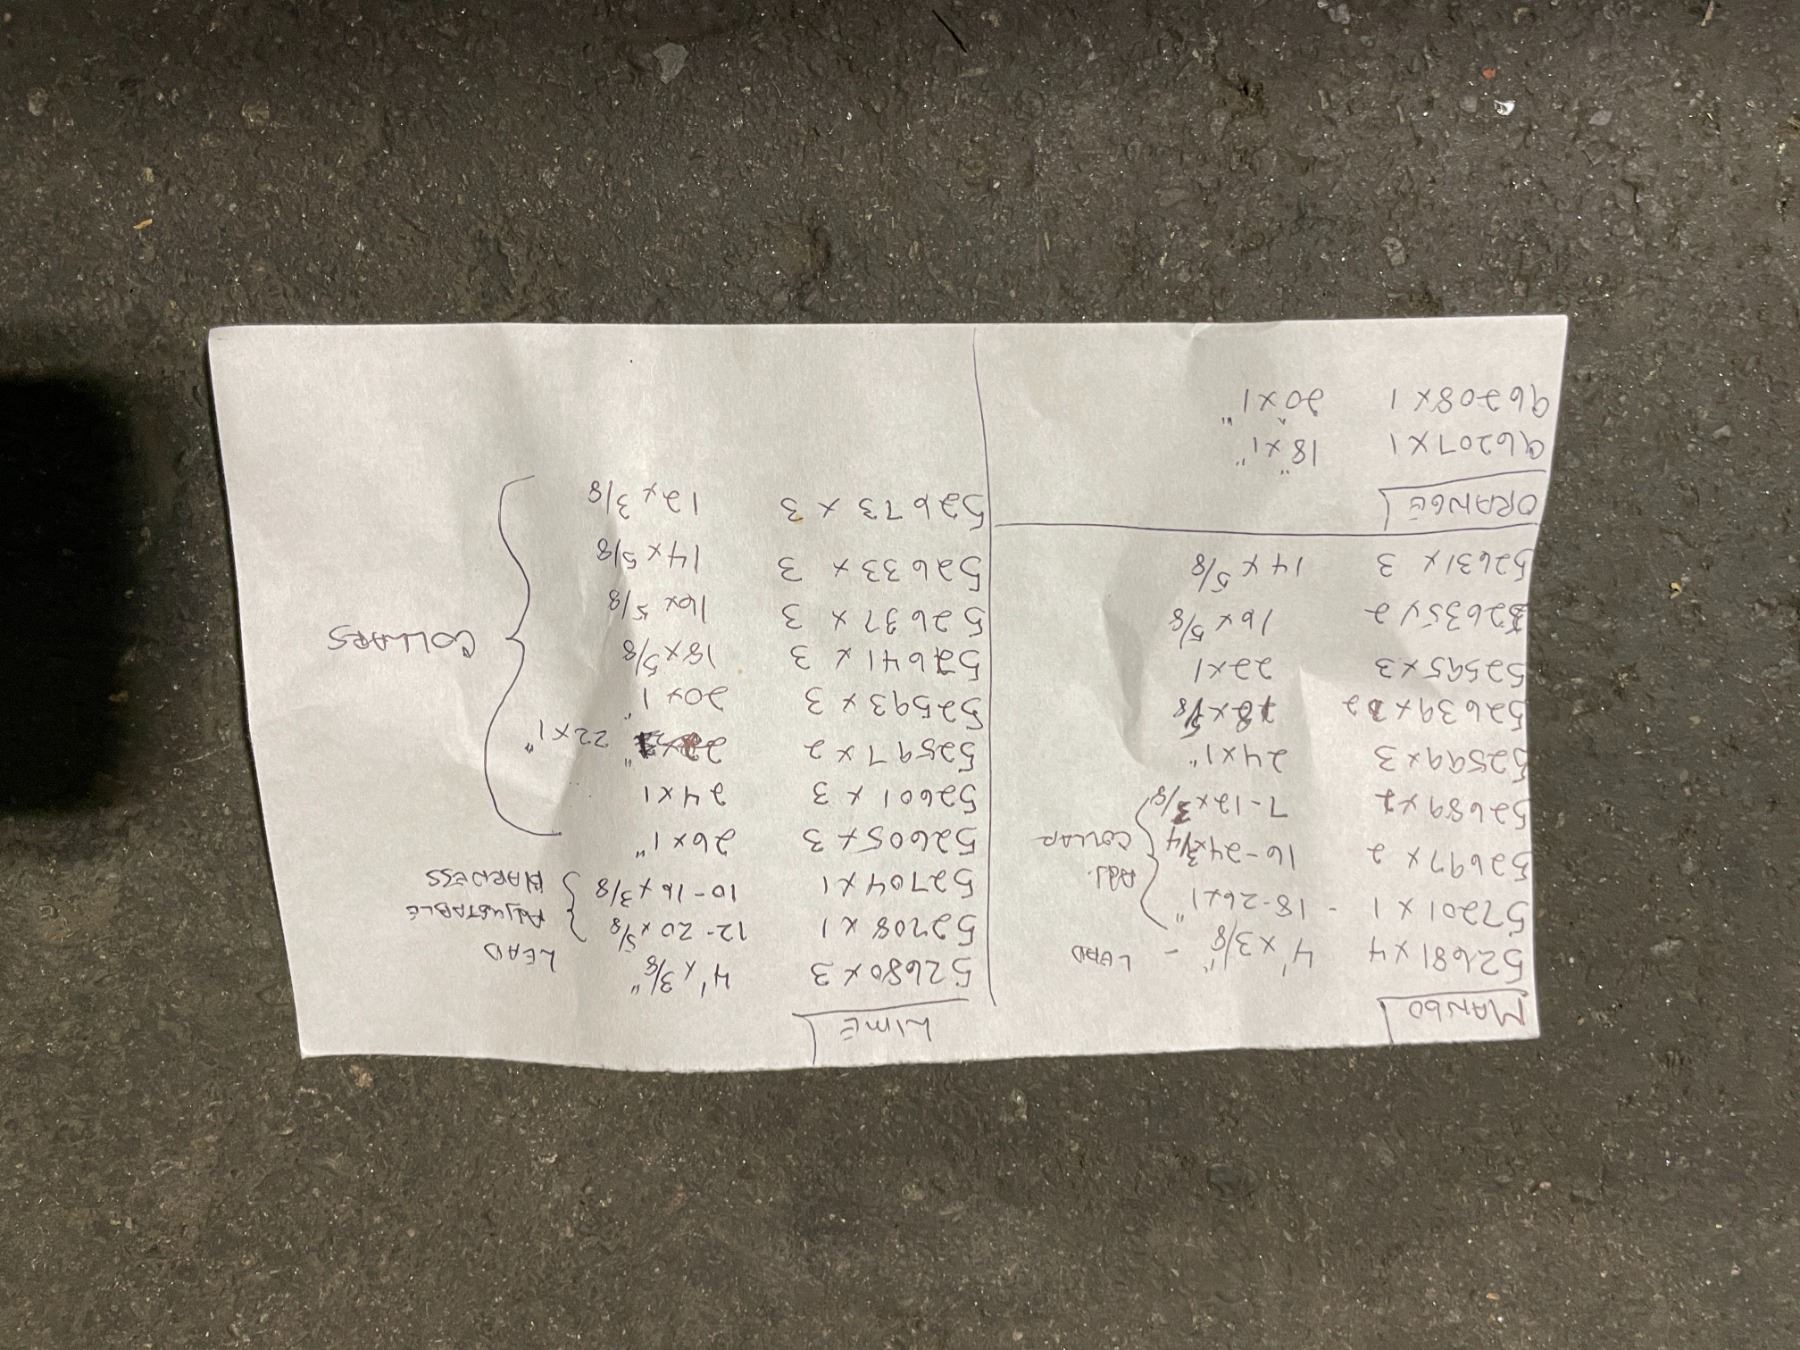 MANGO
52681 x 4 4' x 3/8" - LEAD
57201 x 1 - 18-26x1"
52697 x 2 16-24x3/4
ADJ. COLLAR
52689 x 2 7-12x3/8
52599 x 3 24x1"
52639 x 2 18x5/8
52595 x 3 22x1
52635 x 2 16x5/8
52631 x 3 14x5/8
ORANGE
96207 x 1 18"x1"
96208 x 1 20"x1"
LIME
52680 x 3 4' x 3/8" LEAD
52708 x 1 12-20 x 5/8
52704 x 1 10-16 x 3/8
ADJUSTABLE
HARNESS
52605 x 3 26x1"
52601 x 3 24x1
52597 x 2 22x1"
52593 x 3 20x1"
52641 x 3 18x5/8
52637 x 3 16x5/8
52633 x 3 14x5/8
52673 x 3 12x3/8
COLLARS